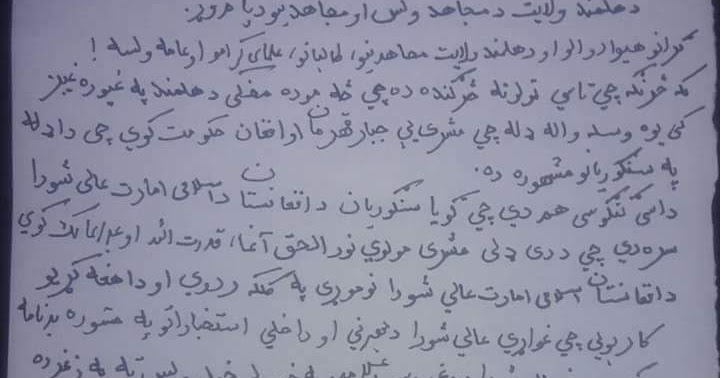 دهلمند ولایت د مجاهد ولس او مجاهدینو د پا
ګرانو هیوادوالو او دهلمند ولایت مجاهدینو، طالبانو، علمای کرامو او عامه ولسه !
که څرنګه چي تاسي ټولو ته څرګنده ده چي څه موده مخکي دهلمند په غیوره غیږ
کي یوه وسله واله ډله چي مشري یې جبار قهرمان او افغان حکومت کوي چي دا ډله
په سنګوریانو مشهوره ده.
داسي ګنګوسي هم دي چي ګویا سنګوریان د افغانستان د اسلامي امارت عالي شورا
سره دي چي د دې ډلي مشري مولوي نورالحق آغا، قدرت الله او عبدالمالک کوي
د افغانستان اسلامي امارت عالي شورا نوموړي په کلکه ردوي او دا هغه کړیو
کار بولي چي غواړي عالي شورا د بهرني او داخلي استخباراتو په مشوره بدنامه